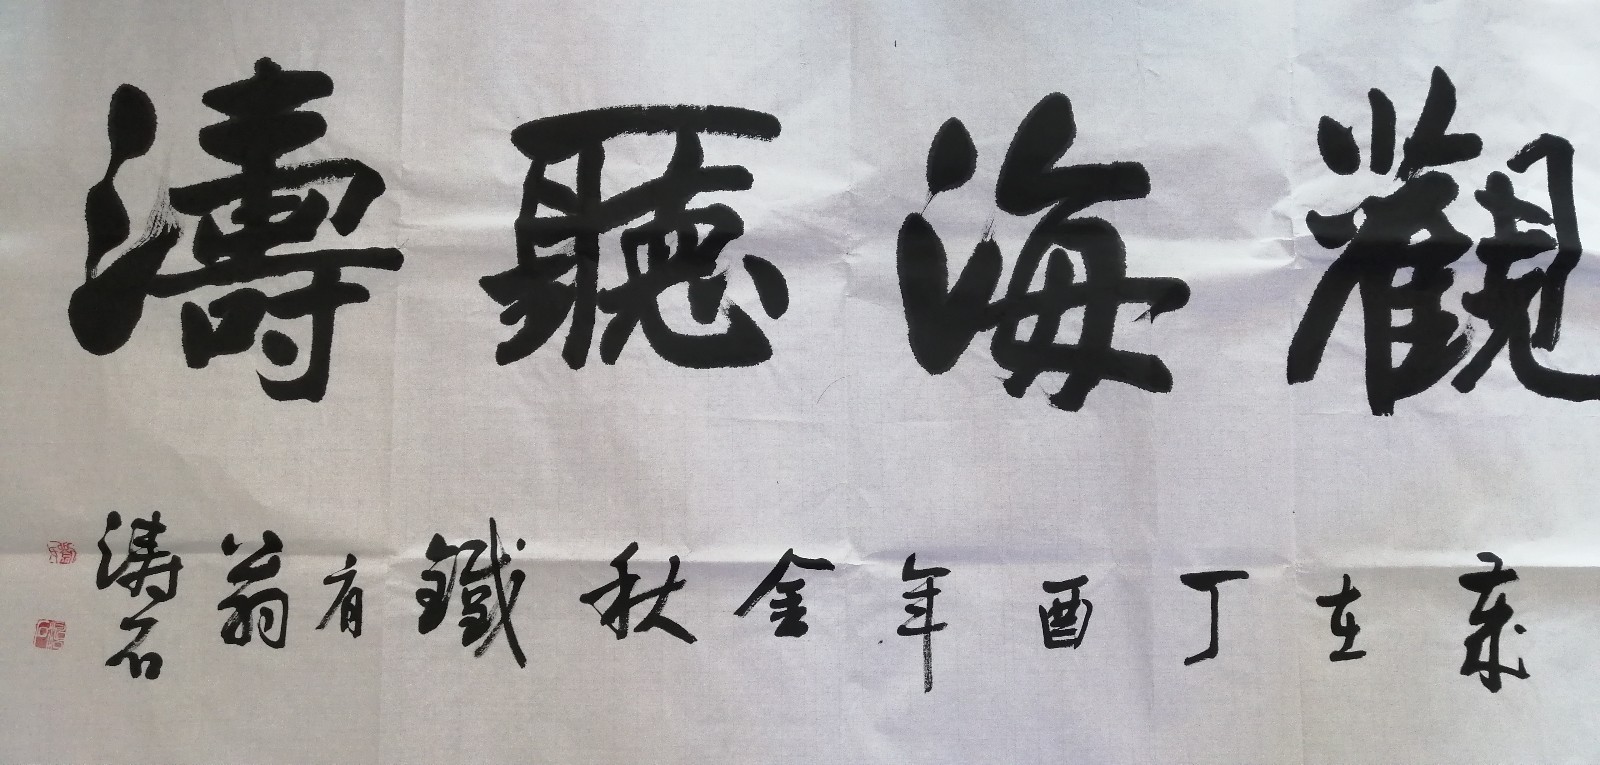 觀海聽濤
歲在丁酉年金秋鐵有翁濤石